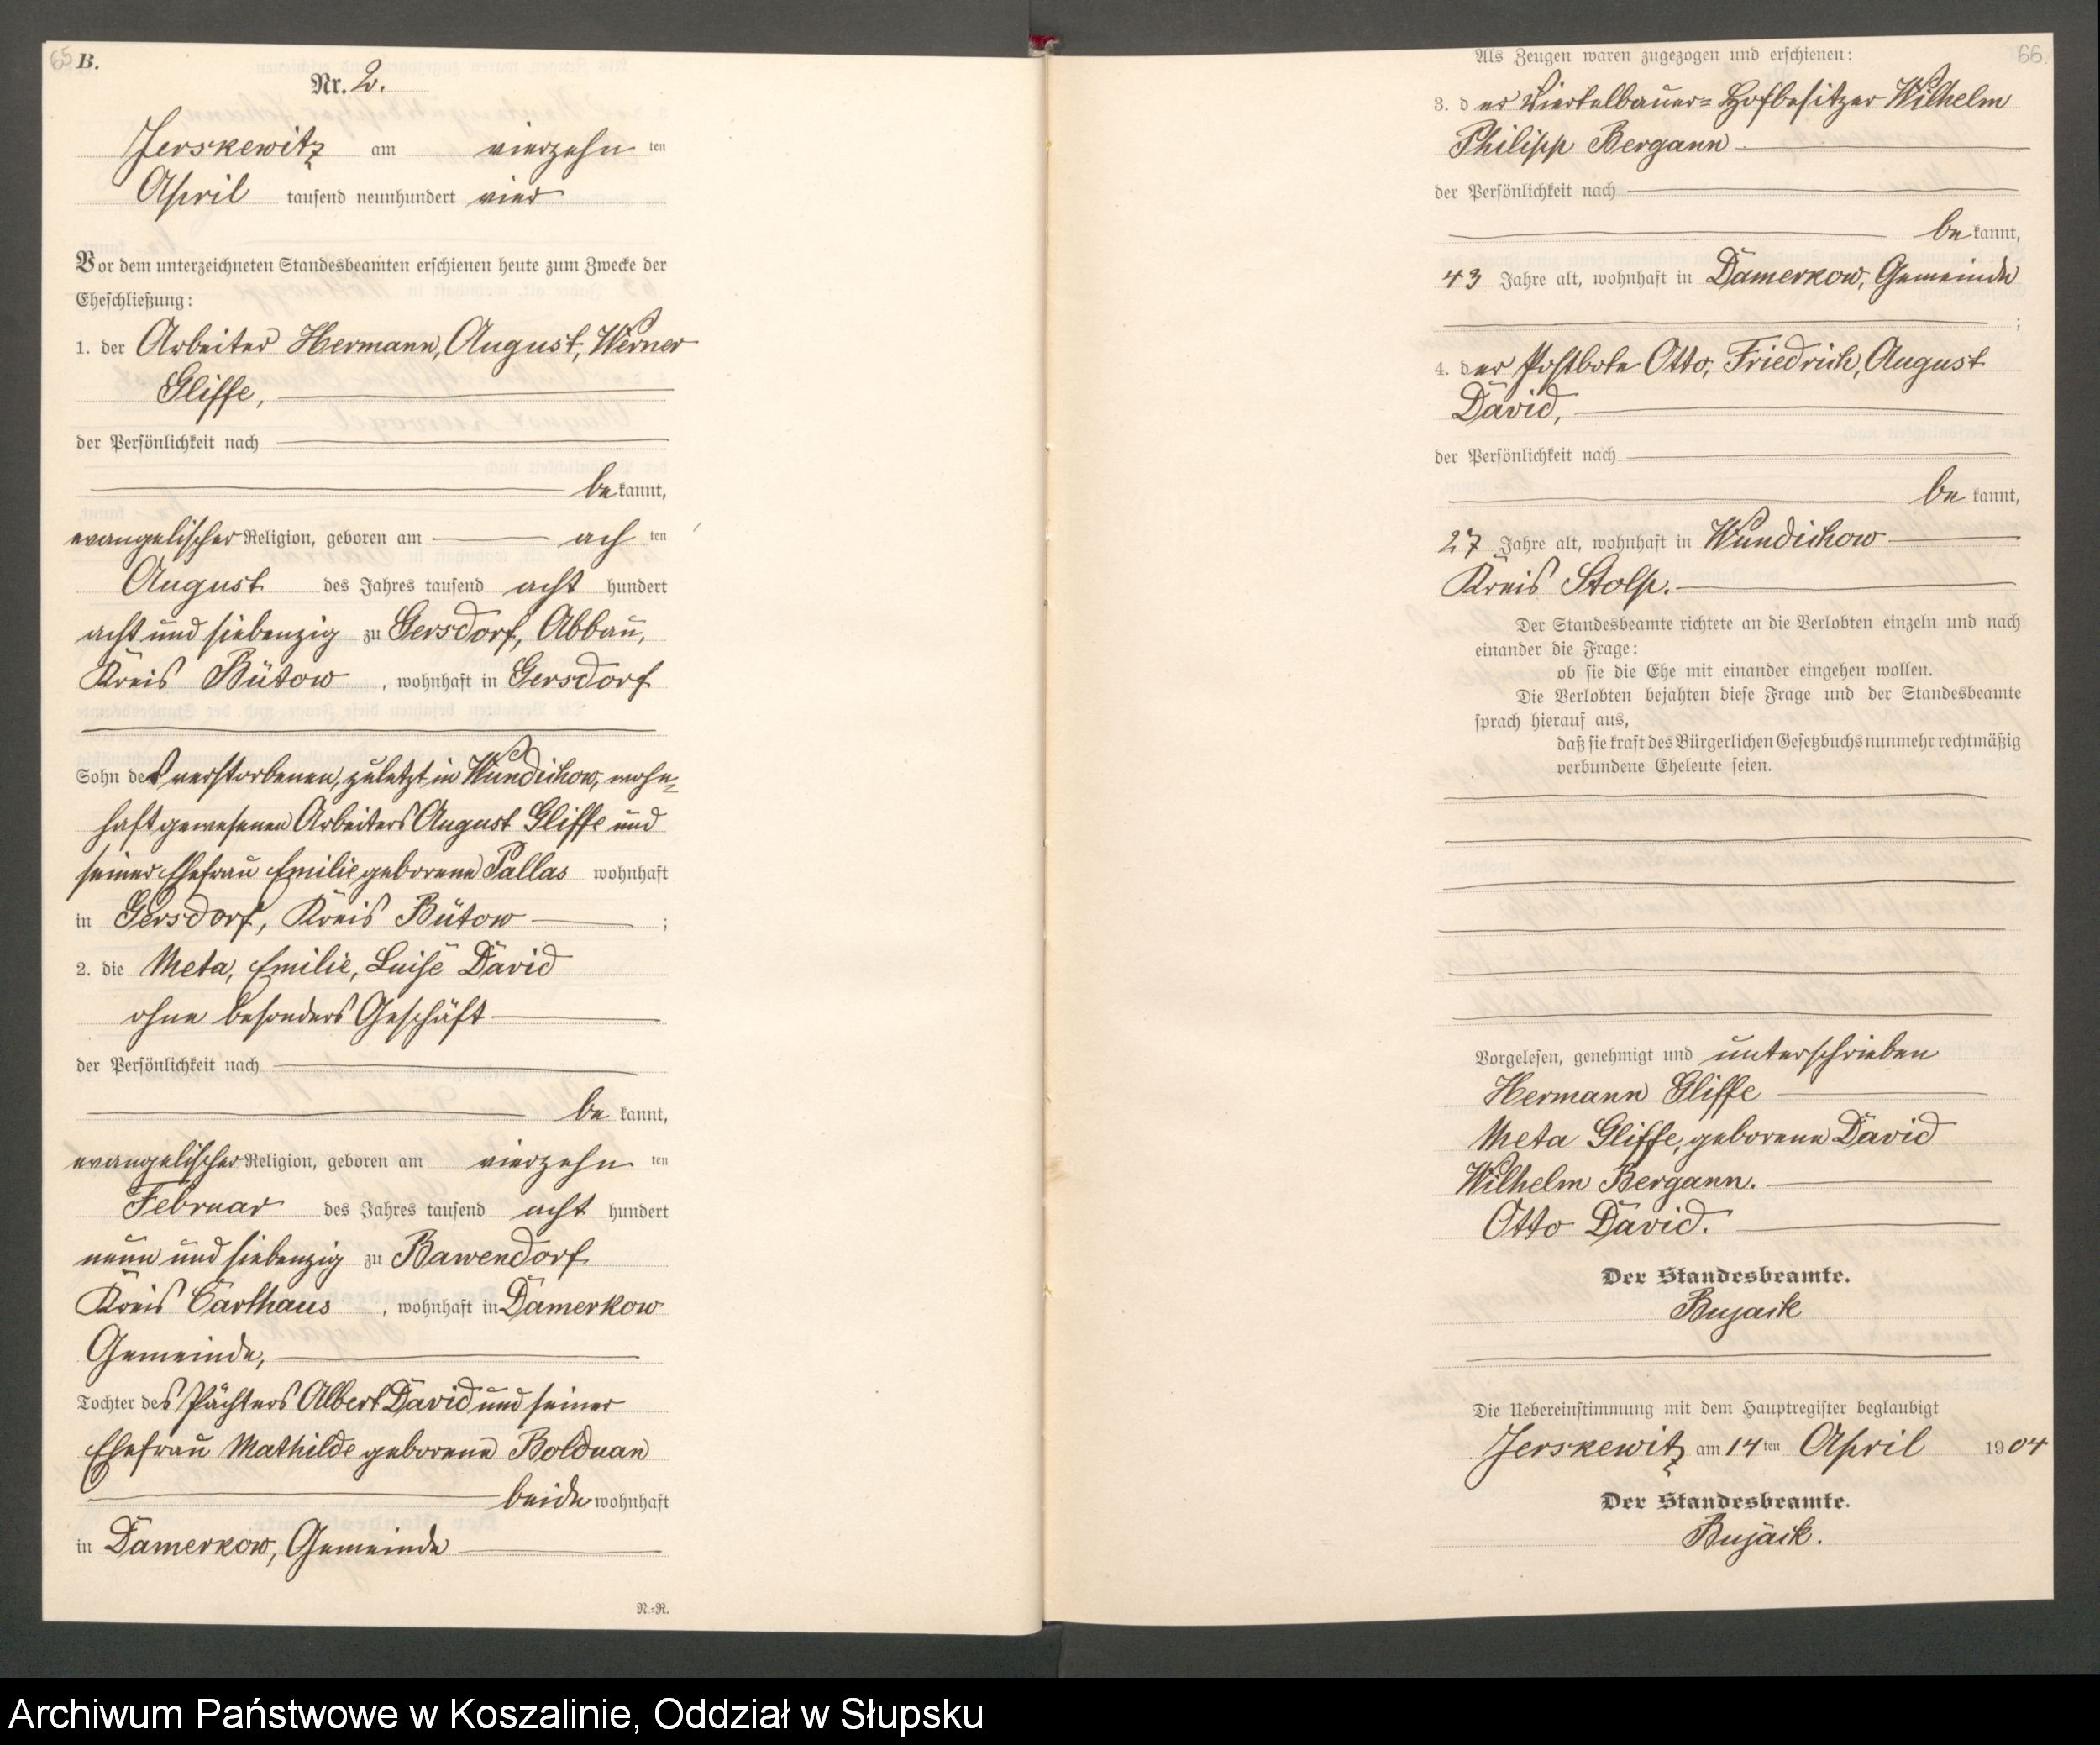 65 B.
Nr. 2.
Jerskewitz am vierzehn ten
April tausend neunhundert vier
Vor dem unterzeichneten Standesbeamten erschienen heute zum Zwecke der
Eheschließung:
1. der Arbeiter Hermann, August, Werner
Gliffe,
der Persönlichkeit nach
be kannt,
evangelischer Religion, geboren am ach ten
August des Jahres tausend acht hundert
acht und siebenzig zu Gersdorf, Abbau,
Kreis Bütow, wohnhaft in Gersdorf
Sohn des verstorbenen, zuletzt in Wundichow, wohn=
haft gewesenen Arbeiters August Gliffe und
seiner Ehefrau Emilie geborene Pallas wohnhaft
in Gersdorf, Kreis Bütow ;
2. die Meta, Emilie, Luise David
ohne besonders Geschäft
der Persönlichkeit nach
be kannt,
evangelischer Religion, geboren am vierzehn ten
Februar des Jahres tausend acht hundert
neun und siebenzig zu Bawendorf
Kreis Carthaus, wohnhaft in Damerkow
Gemeinde,
Tochter des Pächters Albert David und seiner
Ehefrau Mathilde geborene Bolduan
beide wohnhaft
in Damerkow, Gemeinde
N.=R.
66.
Als Zeugen waren zugezogen und erschienen:
3. der Viertelbauer= Hofbesitzer Wilhelm
Philipp Bergann
der Persönlichkeit nach
be kannt,
43 Jahre alt, wohnhaft in Damerkow, Gemeinde
;
4. der Postbote Otto, Friedrich, August
David,
der Persönlichkeit nach
be kannt,
27 Jahre alt, wohnhaft in Wundichow
Kreis Stolp.
Der Standesbeamte richtete an die Verlobten einzeln und nach
einander die Frage:
ob sie die Ehe mit einander eingehen wollen.
Die Verlobten bejahten diese Frage und der Standesbeamte
sprach hierauf aus,
daß sie kraft des Bürgerlichen Gesetzbuchs nunmehr rechtmäßig
verbundene Eheleute seien.
Vorgelesen, genehmigt und unterschrieben
Hermann Gliffe
Meta Gliffe, geborene David
Wilhelm Bergann.
Otto David.
Der Standesbeamte.
Bujack
Die Uebereinstimmung mit dem Hauptregister beglaubigt
Jerskewitz am 14 ten April 1904
Der Standesbeamte.
Bujack.
Archiwum Państwowe w Koszalinie, Oddział w Słupsku